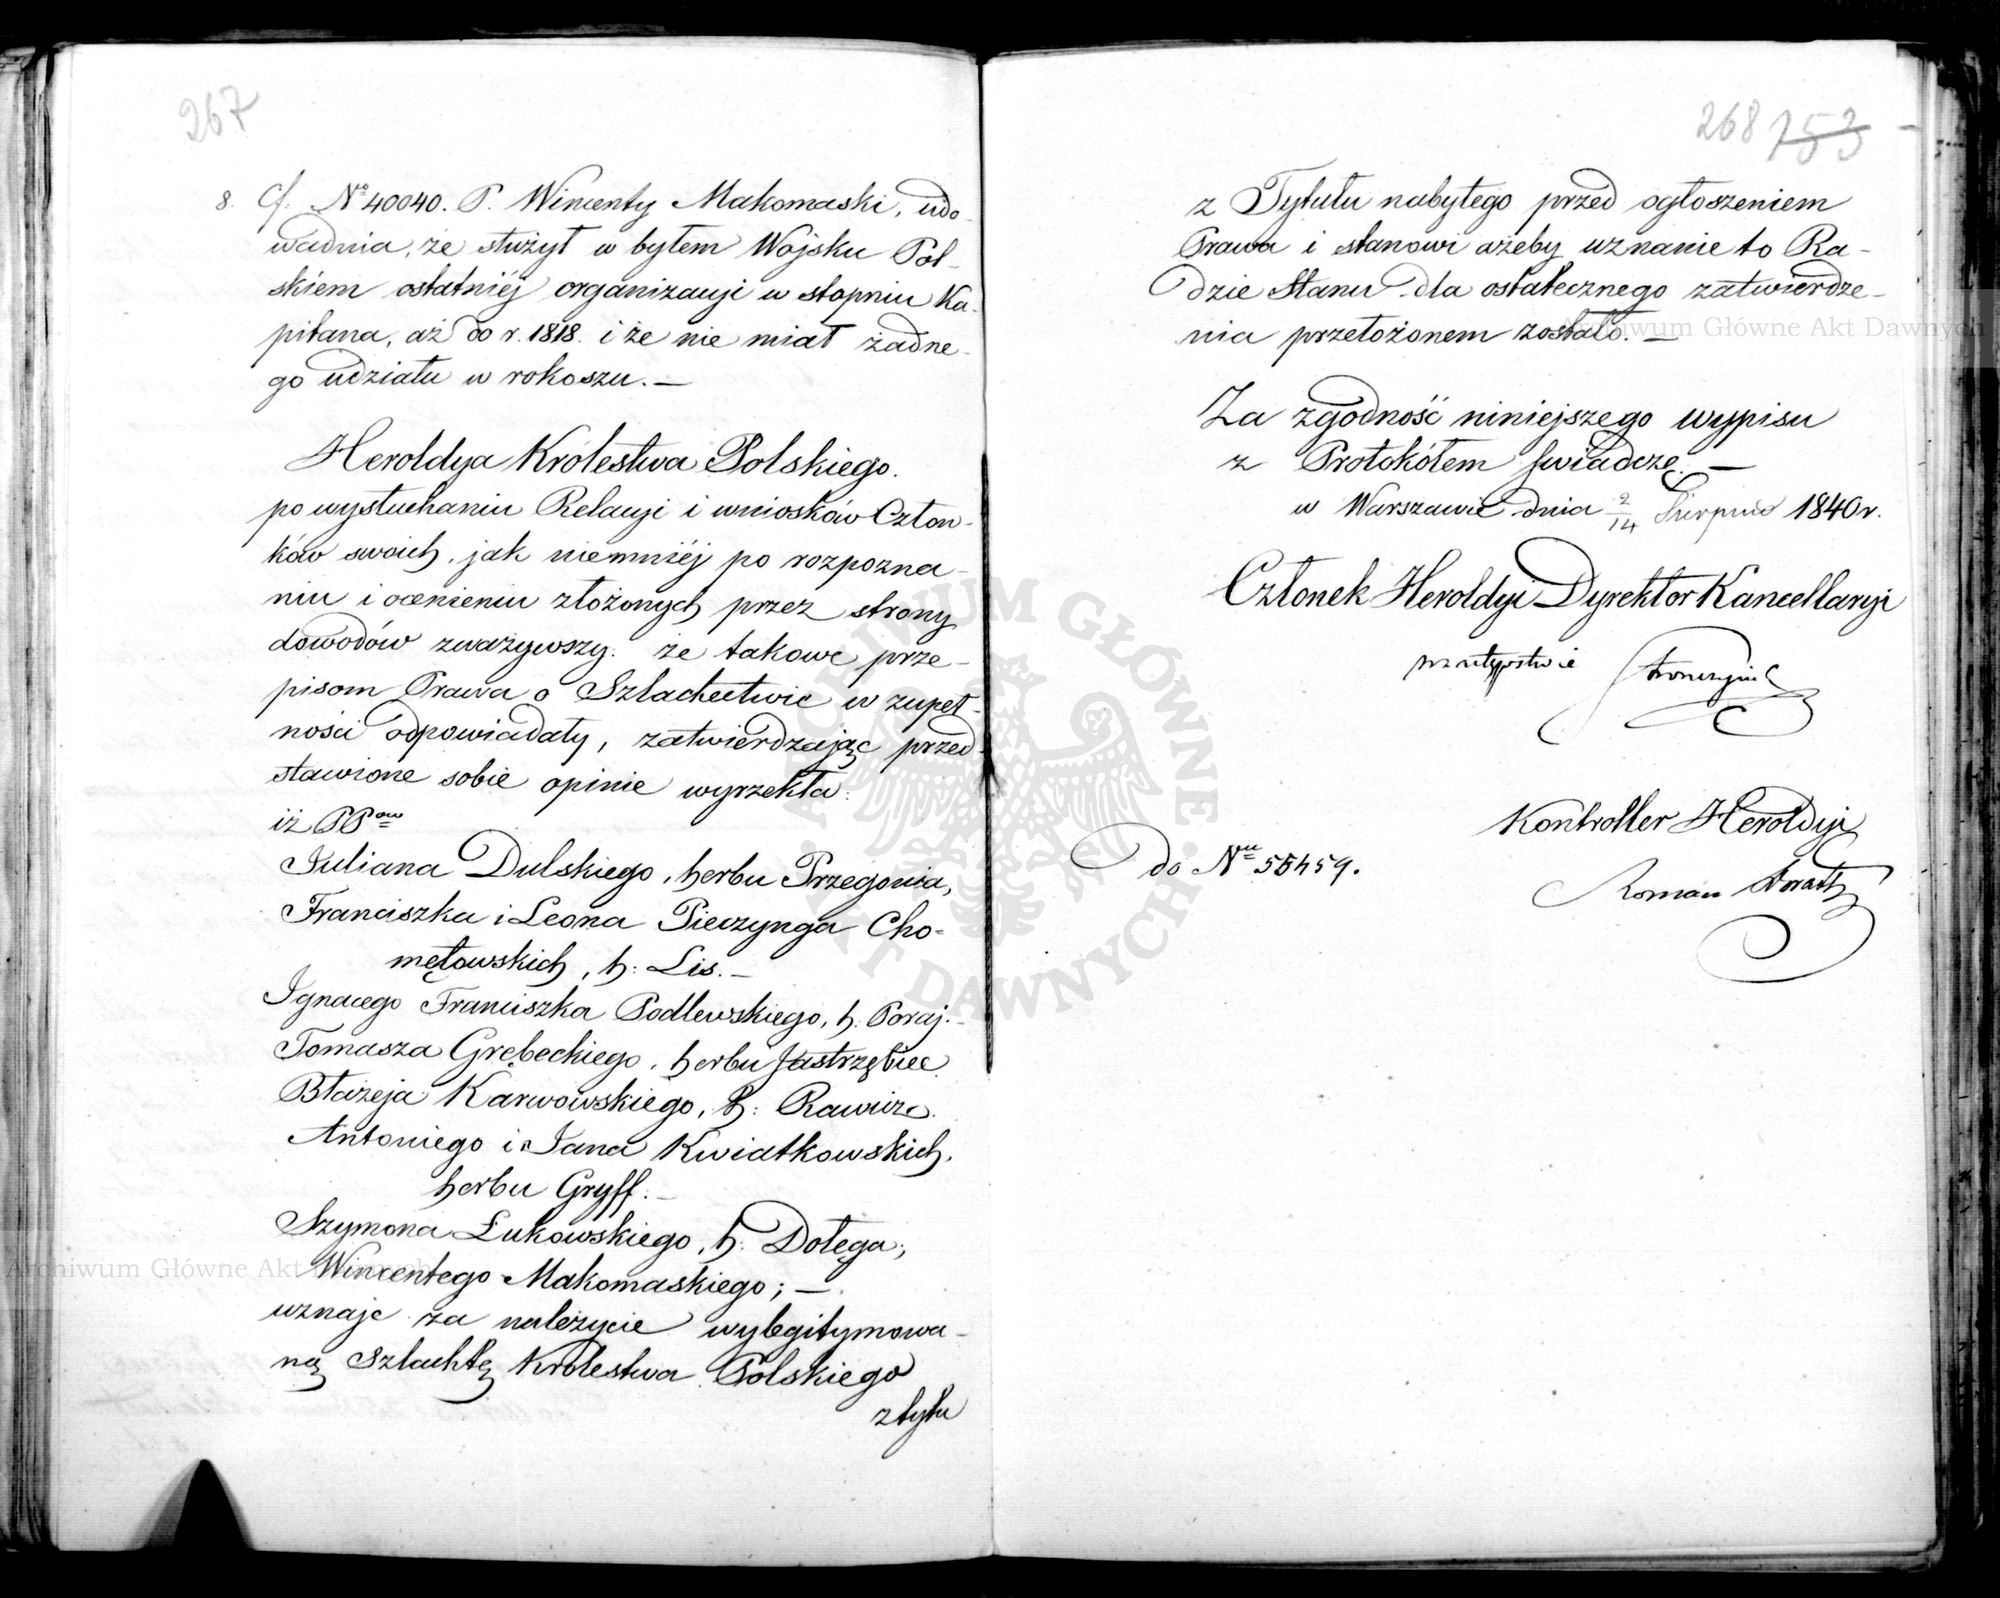 267
8. Cf. No 40040. P. Wincenty Makomaski, udo-
wadnia, że służył w byłem Wojsku Pol-
skiém ostatniéj organizacyi w stopniu Ka-
pitana, aż do r. 1818. i że nie miał żadne-
go udziału w rokoszu. —
Heroldya Królestwa Polskiego.
po wysłuchaniu Relacyi i wniosków Człon-
ków swoich, jak niemniéj po rozpozna-
niu i ocenieniu złożonych przez strony
dowodów zważywszy: że takowe prze-
pisom Prawa o Szlachectwie w zupeł-
ności odpowiadały, zatwierdzając przed-
stawione sobie opinie wyrzekła:
iż PPow
Juliana Dulskiego, herbu Przegonia,
Franciszka i Leona Pieczynga Cho-
mętowskich, h: Lis. —
Ignacego Franciszka Podlewskiego, h. Poraj. -
Tomasza Grębeckiego, herbu Jastrzębiec
Błażeja Karwowskiego, h: Rawicz.
Antoniego i Jana Kwiatkowskich,
herbu Gryff. —
Szymona Łukowskiego, h: Dołęga;
Wincentego Makomaskiego; —
uznaje za należycie wylegitymowa-
ną Szlachtę Królestwa Polskiego
z tytu
268 753
z Tytułu nabytego przed ogłoszeniem
Prawa i stanowi ażeby uznanie to Ra-
dzie Stanu dla ostatecznego zatwierdze-
nia przełożonem zostało. —
Za zgodność niniejszego wypisu
z Protokółem świadczę. —
w Warszawie dnia 2/14 Sierpnia 1840 r.
Członek Heroldyi Dyrektor Kancellaryi
w zastępstwie Stronczyński
Kontroller Heroldyi
do Nru 55459.
Roman
Archiwum Główne Akt Dawnych
Archiwum Główne Akt Dawnych
ARCHIWUM GŁÓWNE AKT DAWNYCH